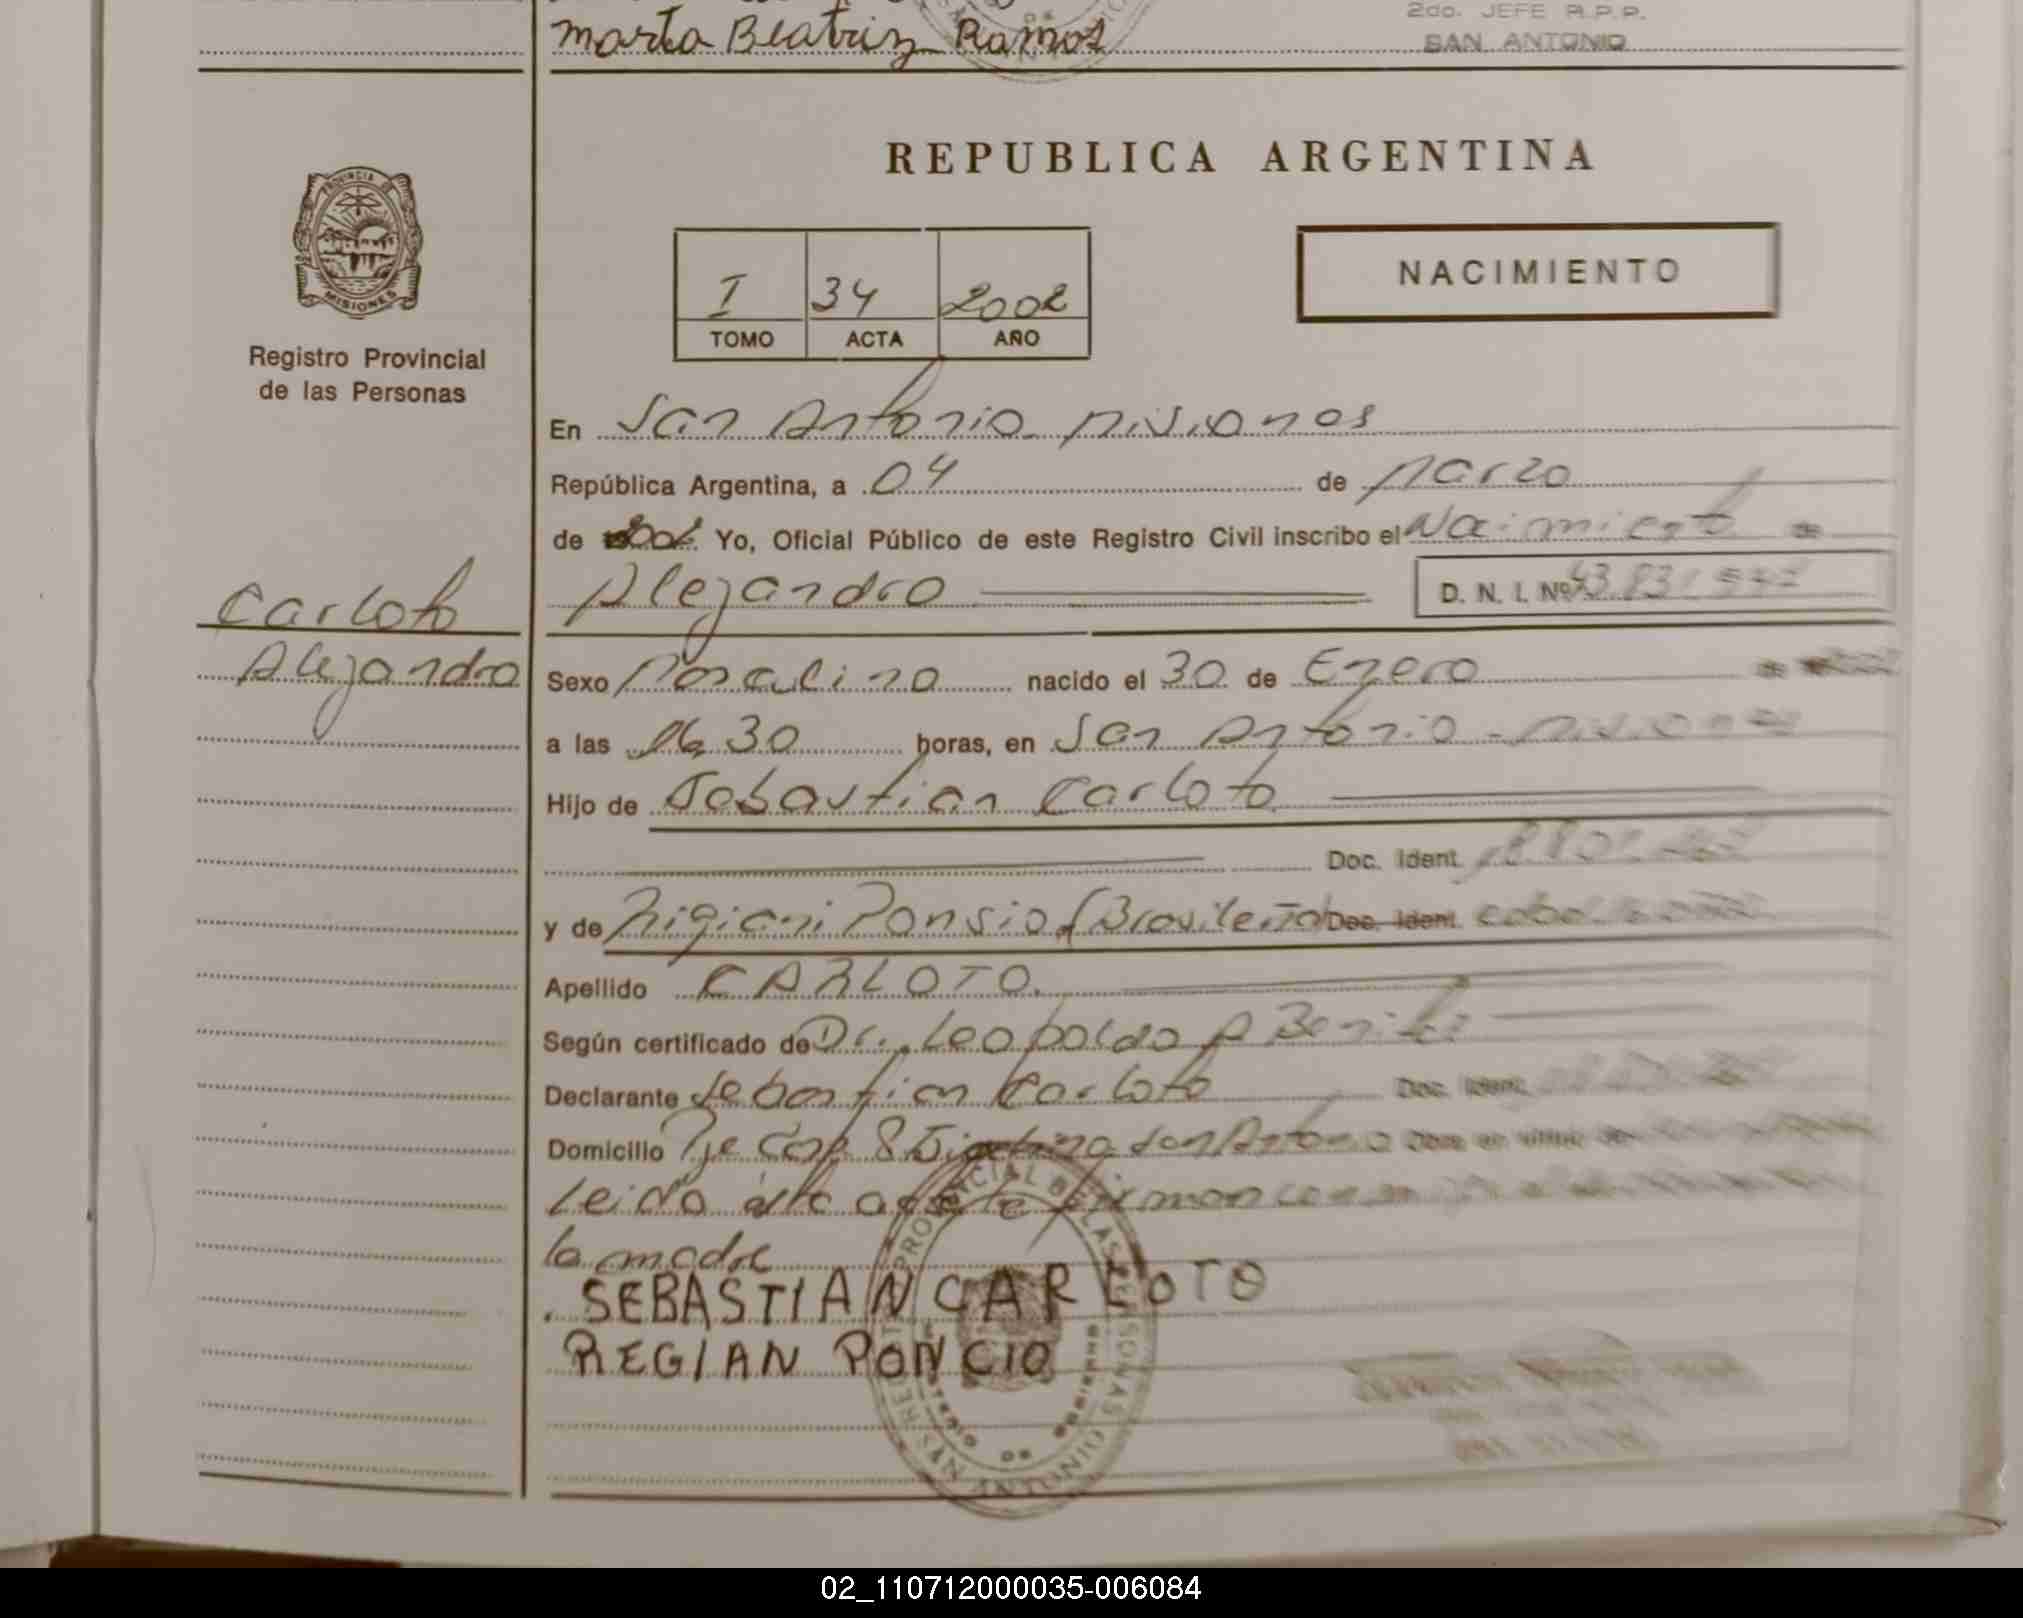 Marta Beatriz Ramos
2do. JEFE R.P.P.
SAN ANTONIO
PROVINCIA DE
MISIONES
Registro Provincial
de las Personas
REPUBLICA ARGENTINA
I 34 2002
TOMO ACTA AÑO
NACIMIENTO
En San Antonio Misiones
República Argentina, a 04 de Marzo
de Yo, Oficial Público de este Registro Civil inscribo el Nacimiento
Carloto
Alejandro
Alejandro
D. N. I. Nº
Sexo Masculino nacido el 30 de Enero
a las 16,30 horas, en San Antonio - Misiones
Hijo de Sebastian Carloto
Doc. Ident.
y de Rigiani Ponsio (Brasileña) Doc. Ident.
Apellido CARLOTO
Según certificado de Dr. Leopoldo A Benitez
Declarante Sebastian Carloto Doc. Ident.
Domicilio San Antonio
Leido firman
la madre
SEBASTIAN CARLOTO
REGIAN PONCIO
REGISTRO PROVINCIAL DE LAS PERSONAS
SAN ANTONIO